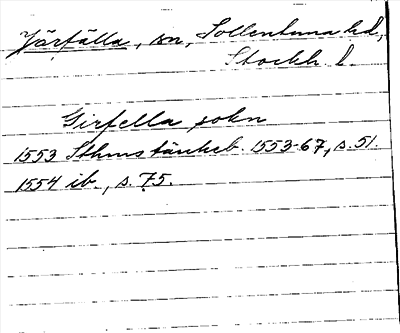 Järfälla, sn, Sollentuna hd,
Stockh. l.
Girfella sokn
1553 Sthms tänkeb. 1553-67, s. 51.
1554 ib., s. 75.